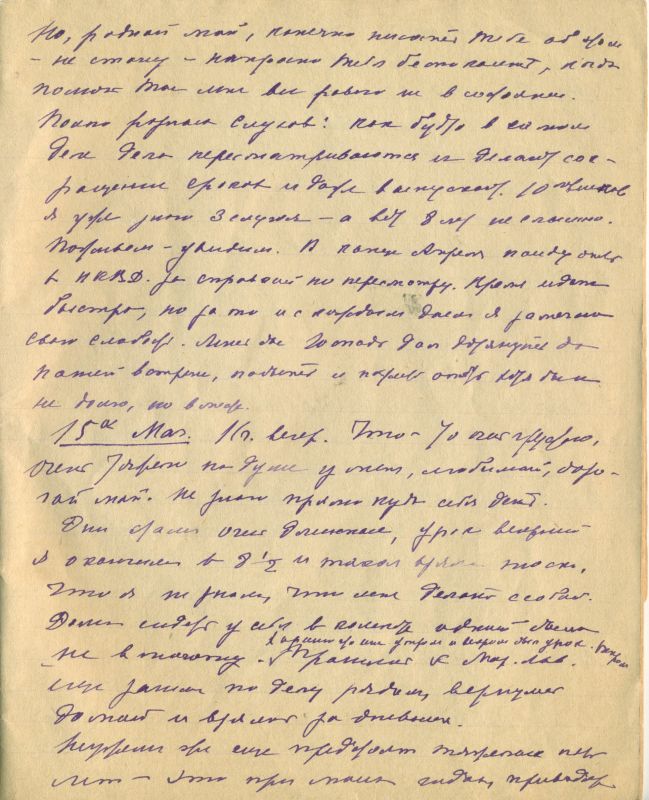 Но, родной мой, конечно писать тебе об этом
- не стану - напрасно тебя беспокоить, когда
помочь ты мне все равно не в состоянии.
Полно разных слухов: как будто в самом
деле дела пересматриваются и делают со-
кращения сроков и даже выпускают. 10
я уже знаю 3 случая - а вот 8 лет не слышно.
Поживем - увидим. В конце Апреля пойду опять
в НКВД. за справкой по пересмотру. Время идет
быстро, но за то и с каждым днем я замечаю
свою слабость. Лишь бы Господь дал дотянуть до
нашей встречи, пожить и опять хотя бы и
не долго, но вместе.
15ое Мая. 11ч. веч. Что-то очень грустно,
очень на душе у меня, любимый, доро-
гой мой. Не знаю прямо куда себя деть.
Дни стали очень длинные, урок вечерний
я окончила в 8 1/2 и такая взяла тоска,
что я не знала, что мне делать с собой.
Дома сидеть у себя в комнате одной было
не в мочь. Прошлась к Мар. Пав.
еще зашла по делу рядом, вернулась
домой и взялась за дневник.
Неужели же еще предстоят пять
лет - это при моих годах